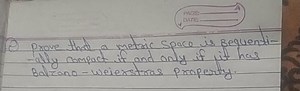 ② Prove that a metric space is sequenti-
-ally compact if and only if it has
Bolzano-weierstras property.